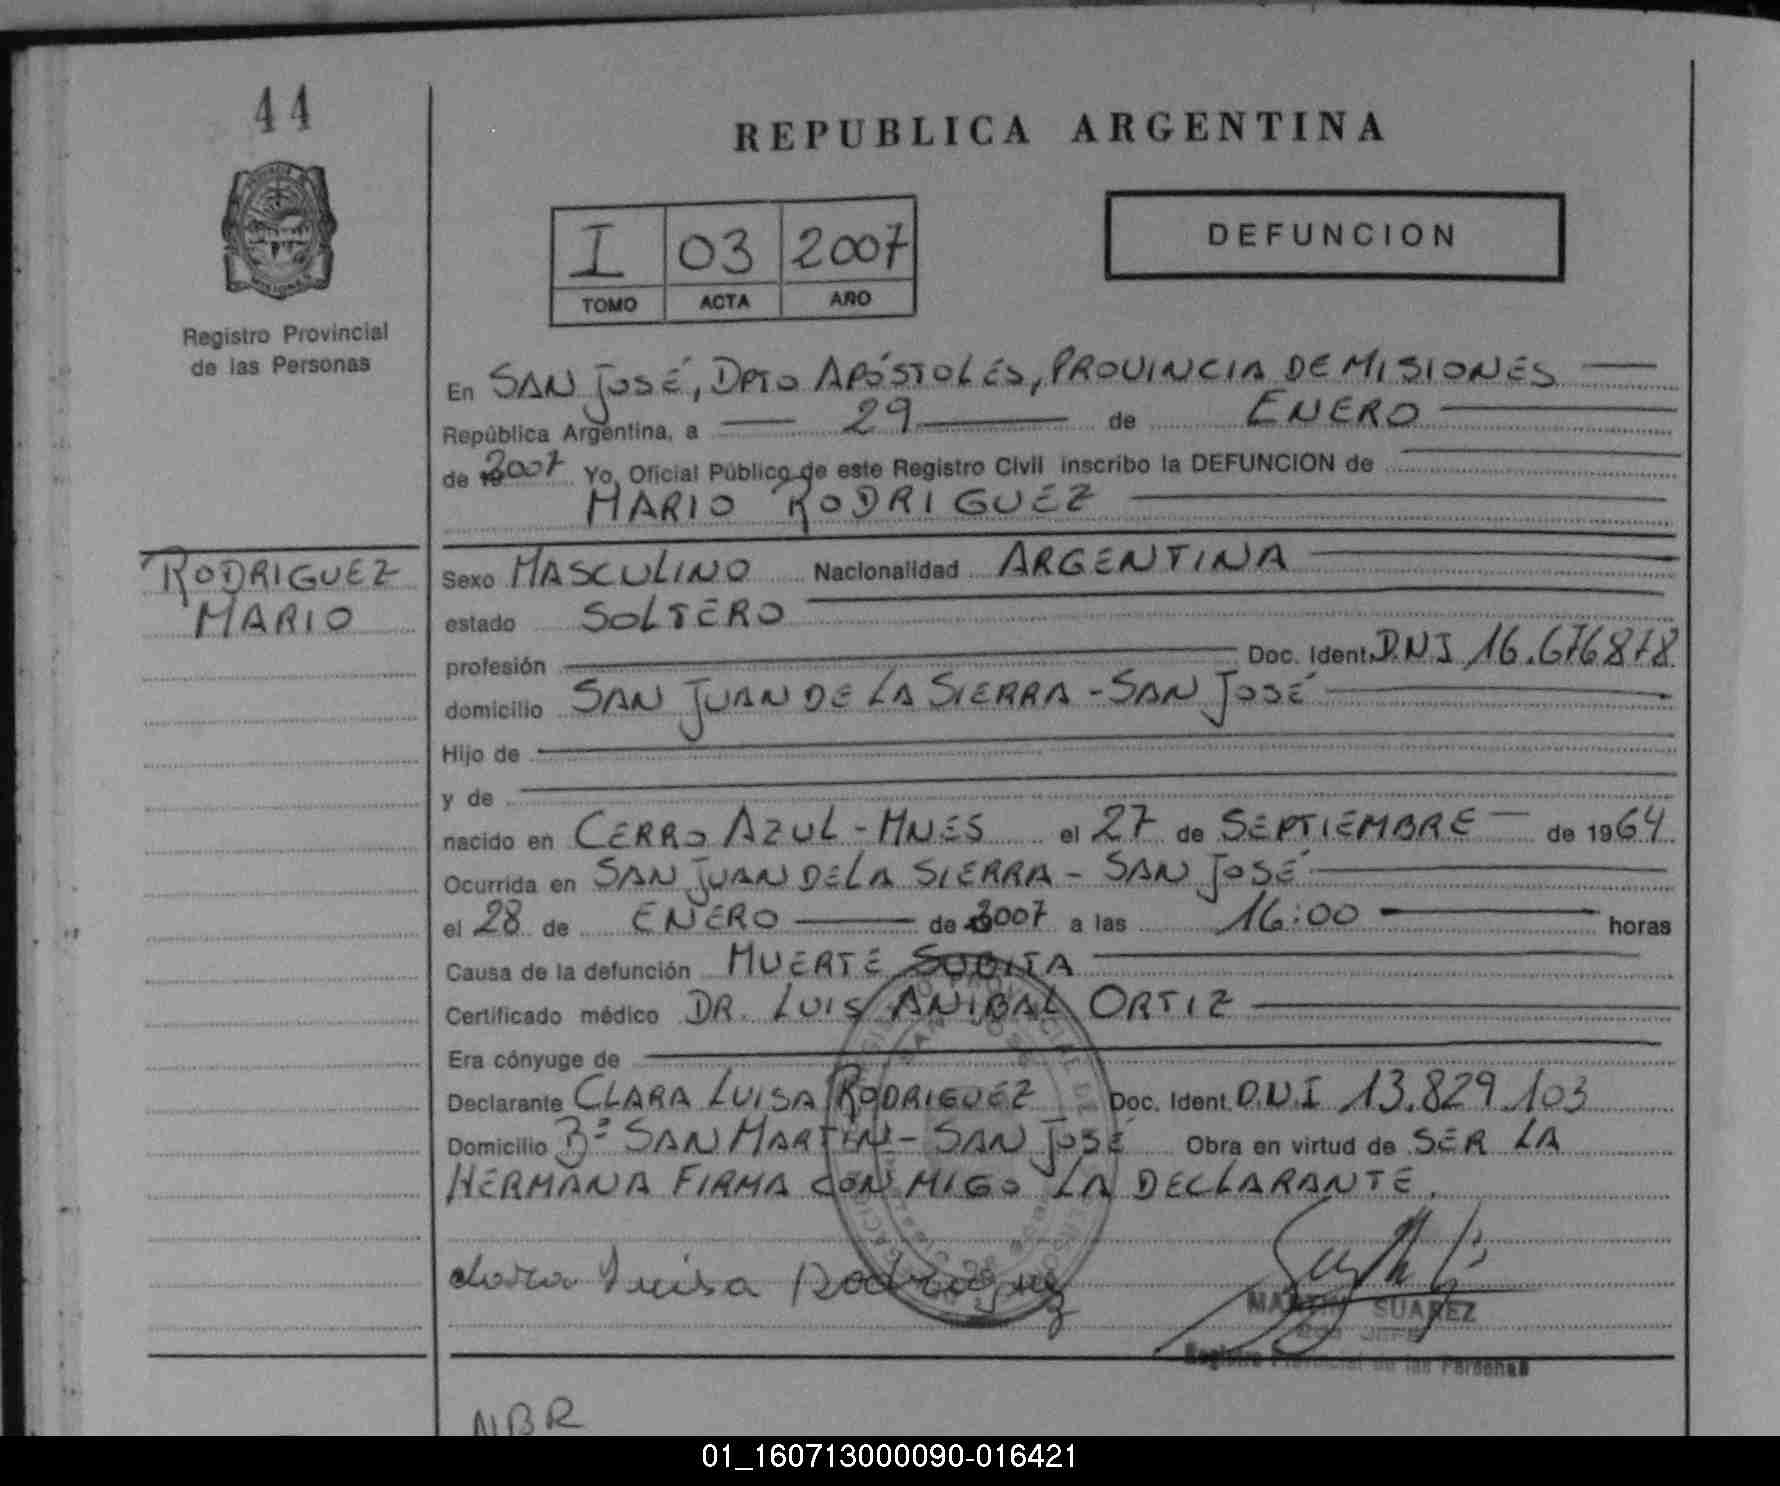 44
REPUBLICA ARGENTINA
DEFUNCION
I 03 2007
TOMO ACTA AÑO
Registro Provincial
de las Personas
En SAN JOSÉ, DPTO APÓSTOLES, PROVINCIA DE MISIONES
República Argentina, a 29 de ENERO
de 2007 Yo, Oficial Público de este Registro Civil inscribo la DEFUNCION de
MARIO RODRIGUEZ
RODRIGUEZ
MARIO
Sexo MASCULINO Nacionalidad ARGENTINA
estado SOLTERO
profesión Doc. Ident. D.N.I 16.676878
domicilio SAN JUAN DE LA SIERRA - SAN JOSÉ
Hijo de
y de
nacido en CERRO AZUL - MNES el 27 de SEPTIEMBRE de 1964
Ocurrida en SAN JUAN DE LA SIERRA - SAN JOSÉ
el 28 de ENERO de 2007 a las 16:00 horas
Causa de la defunción MUERTE SUBITA
Certificado médico DR. LUIS ANIBAL ORTIZ
Era cónyuge de
Declarante CLARA LUISA RODRIGUEZ Doc. Ident. D.N.I 13.829.103
Domicilio Bº SAN MARTIN - SAN JOSÉ Obra en virtud de SER LA
HERMANA FIRMA CON MIGO LA DECLARANTE.
Clara Luisa Rodriguez
MARTIN SUAREZ
JEFE
Registro Provincial de las Personas
NBR
01_160713000090-016421